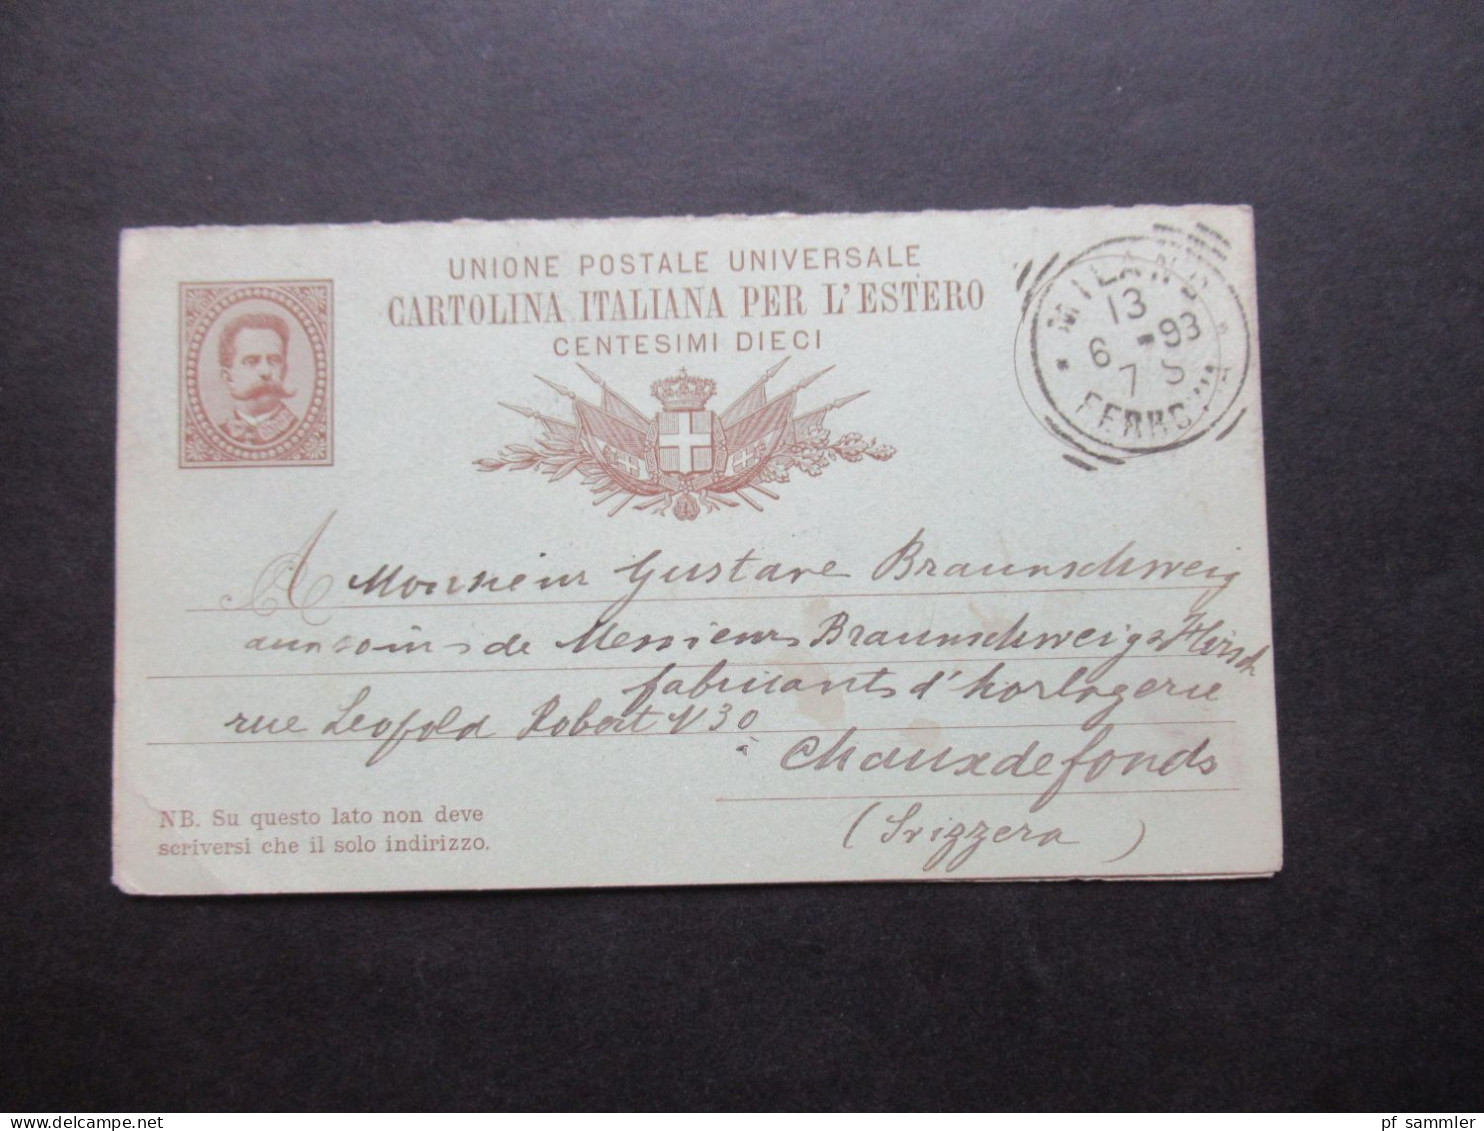 UNIONE POSTALE UNIVERSALE
CARTOLINA ITALIANA PER L'ESTERO
CENTESIMI DIECI
MILANO
13
6 - 93
7 S
FERROVIA
A Monsieur Gustave Braunschweig
aux soins de Messieurs Braunschweig & Hirsch
fabricants d'horlogerie
rue Leopold Robert N 30
à Chauxdefonds
(Svizzera)
NB. Su questo lato non deve
scriversi che il solo indirizzo.
pf sammler